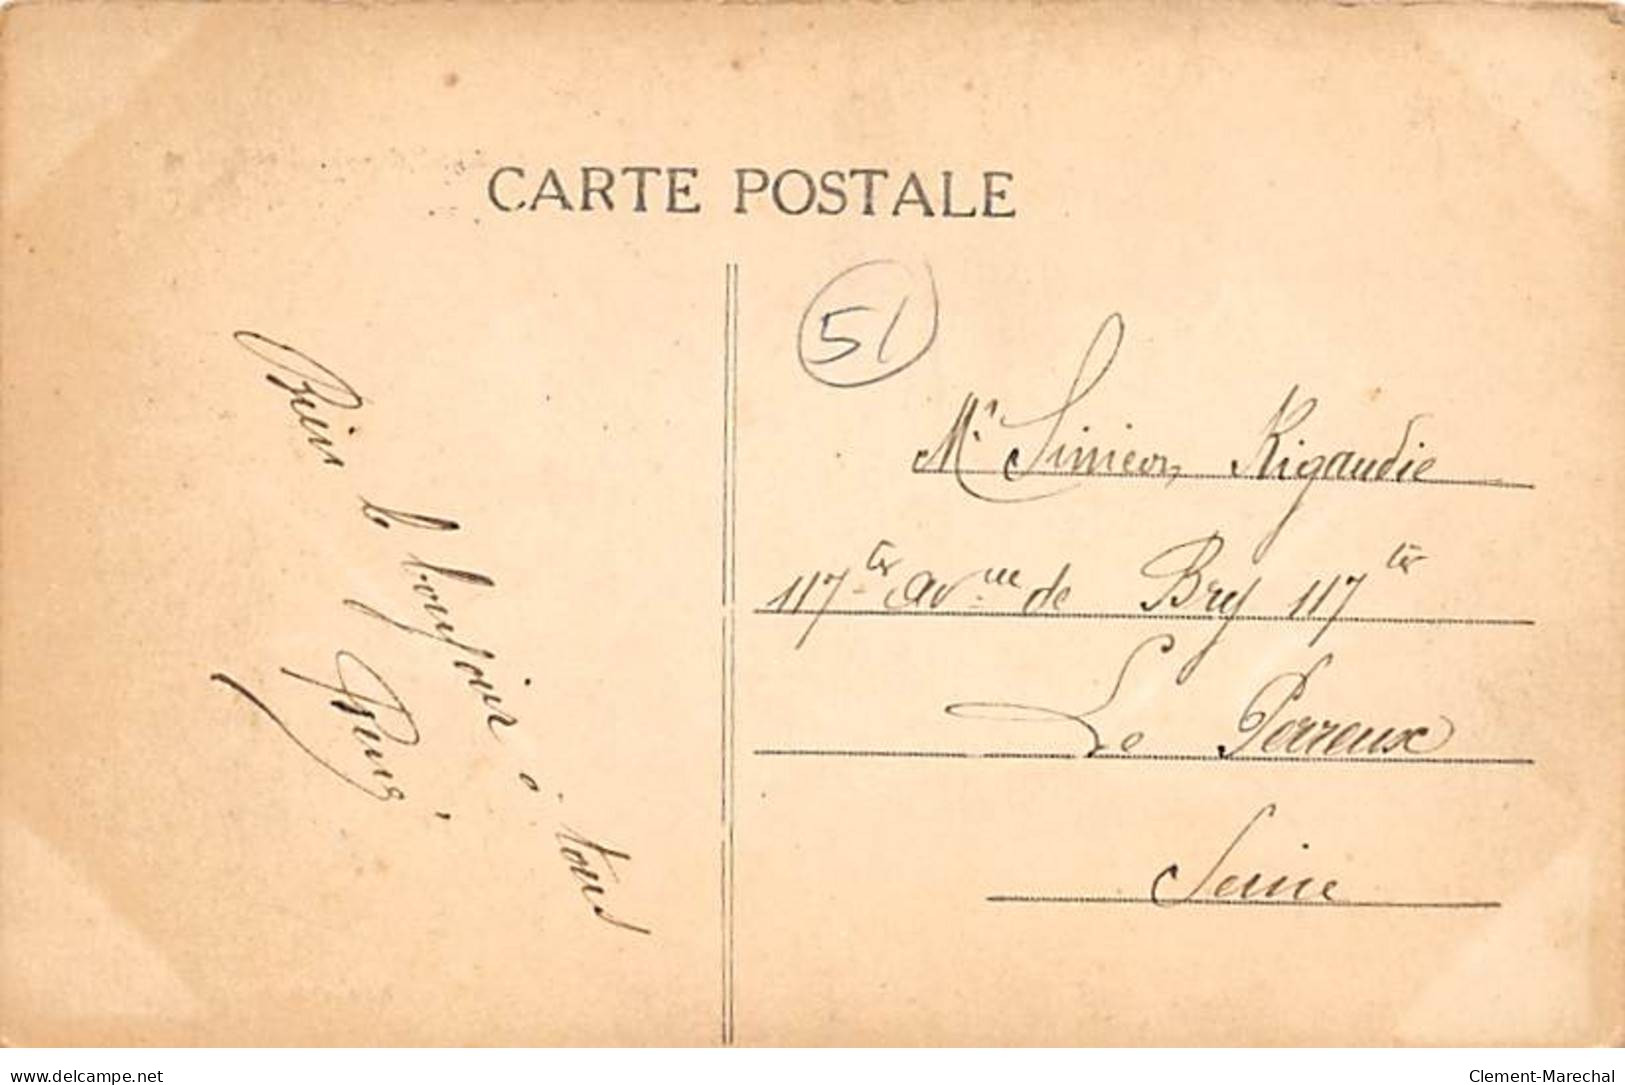 CARTE POSTALE
51
Bien le bonjour à tous
Mr. Siméon Rigaudie
117ter avme de Bry 117ter
Le Perreux
Seine
www.delcampe.net
Clement-Marechal